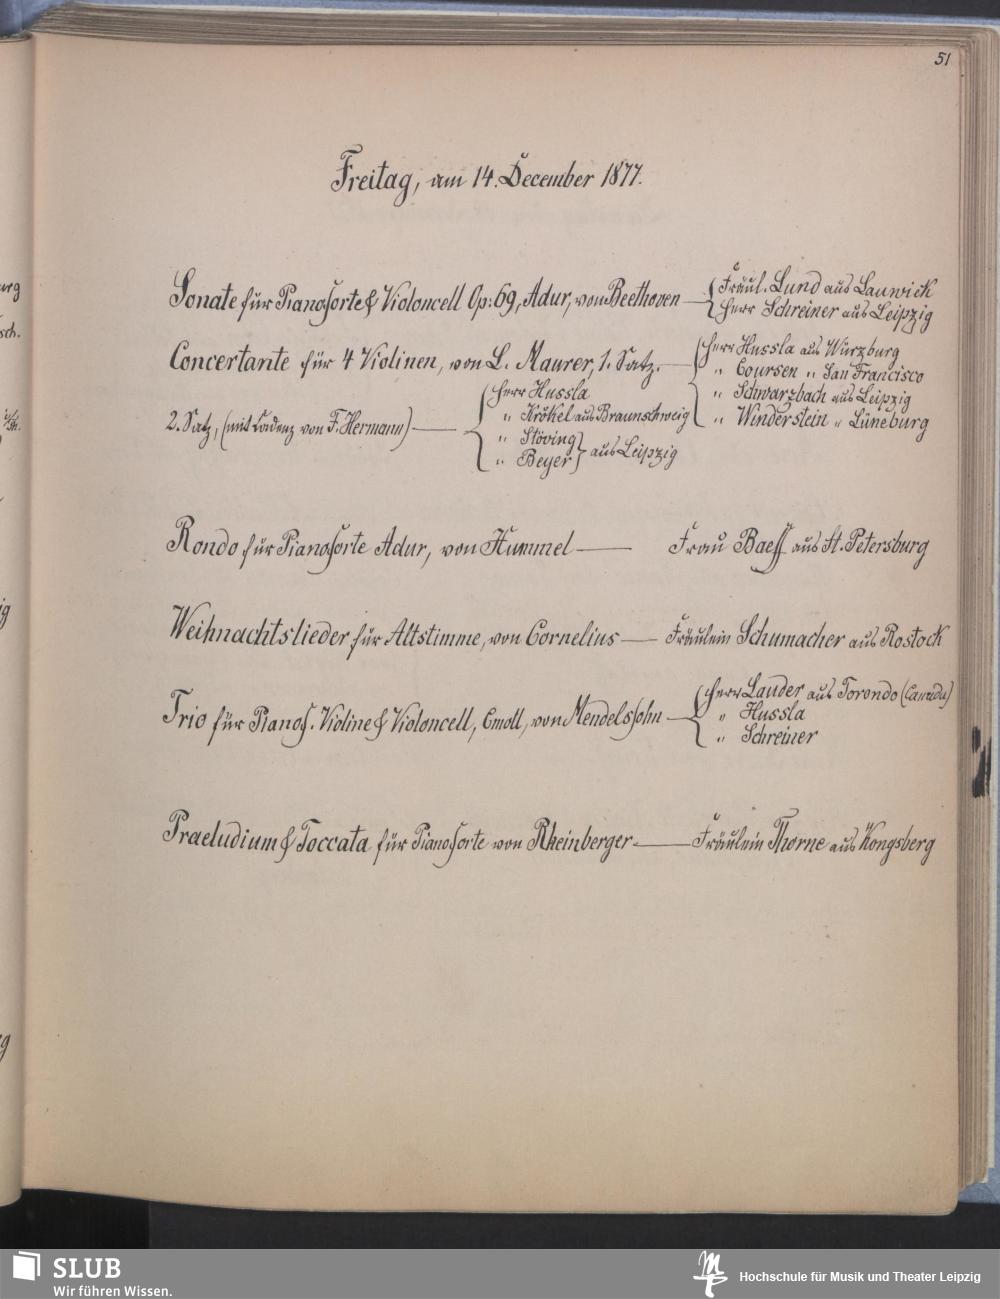 51
Freitag, am 14. December 1877.
Sonate für Pianoforte & Violoncell Op: 69, Adur, von Beethoven — Fräul. Lund aus Lauwick
Herr Schreiner aus Leipzig
Concertante für 4 Violinen, von L. Maurer, 1. Satz. — Herr Hussla aus Würzburg
" Coursen " San Francisco
" Schwarzbach aus Leipzig
" Winderstein " Lüneburg
2. Satz, (mit Cadenz von F. Hermann) — Herr Hussla
" Krökel aus Braunschweig
" Stöving
" Beyer } aus Leipzig
Rondo für Pianoforte Adur, von Hummel — Frau Baeff aus St. Petersburg
Weihnachtslieder für Altstimme, von Cornelius — Fräulein Schumacher aus Rostock
Trio für Pianof. Violine & Violoncell, Cmoll, von Mendelssohn — Herr Lauder aus Torondo (Canada)
" Hussla
" Schreiner
Praeludium & Toccata für Pianoforte von Rheinberger. — Fräulein Thorne aus Kongsberg
SLUB
Wir führen Wissen.
Hochschule für Musik und Theater Leipzig